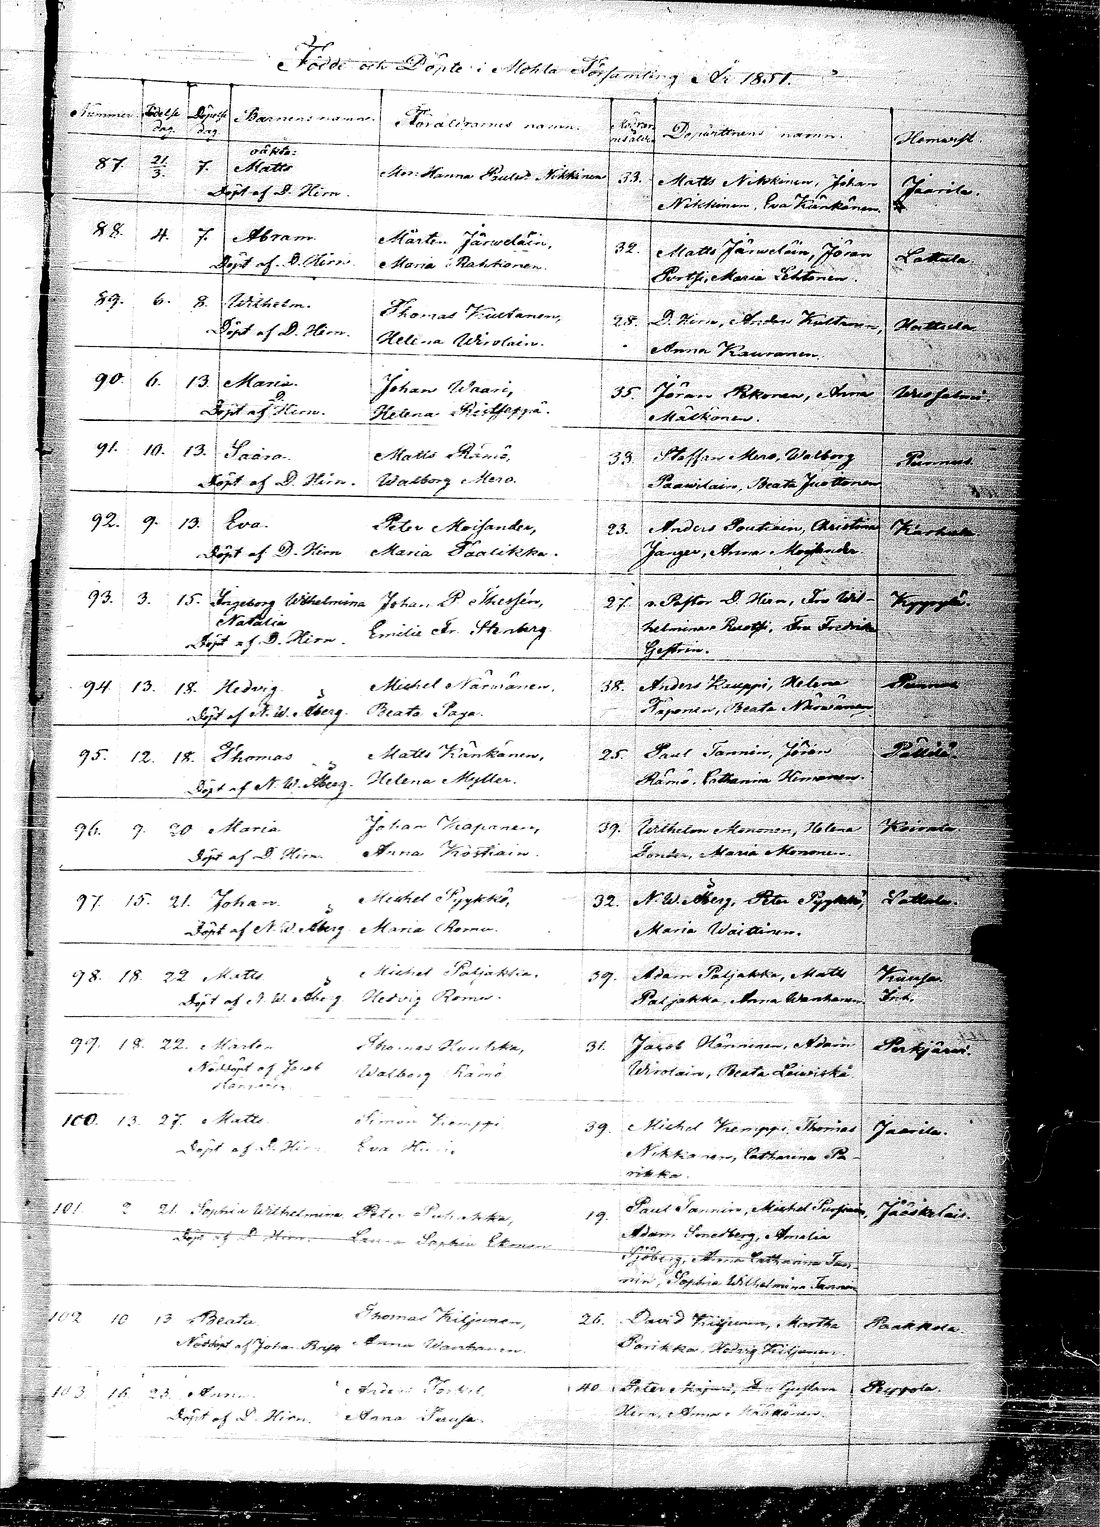 Födde och Döpte i Mohla Församling År 1851.
Nummer. Födelse dag. Döpelse dag. Barnens namn. Föräldrarnes namn. Modrens ålder Dopvittnens namn. Hemvist.
87. 21/3. 7. oäkta: Matts Mor: Hanna Paulsd. Nikkinen 33. Matts Nikkinen, Johan Jaarila.
Döpt af D. Hirn. Nikkinen, Eva Känkänen.
88. 4. 7. Abram. Mårten Järweläin, 32. Matts Järweläin, Jöran Lattula.
Döpt af D. Hirn. Maria Rahkonen. Maria Lehtonen.
89. 6. 8. Wilhelm. Thomas Kultanen, 28. D. Hirn, Anders Kultanen, Hattula
Döpt af D. Hirn. Helena Wirolain. Anna Kauranen.
90. 6. 13. Maria. Johan Waari, 35. Jöran Anna
Döpt af D. Hirn. Helena Mälkönen.
91. 10. 13. Saara. Matts Rämö, 33. Staffan Mero, Walborg Punnus.
Döpt af D. Hirn. Walborg Mero. Paawilain, Beata Juottonen
92. 9. 13. Eva. Peter Moisander, 23. Anders Poutiain, Christina Karhula
Döpt af D. Hirn Maria Paalikka. Anna Moisander
93. 3. 15. Ingeborg Wilhelmina Johan P. Thessén, 27. v. Pastor D. Hirn, Fru Wil- Kyyrylä.
Natalia Emilie Fr. Stenberg. helmina Fru Fredrika
Döpt af D. Hirn.
94. 13. 18. Hedvig. Michel Närwänen. 38. Anders Kauppi, Helena Punnus
Döpt af N. W. Åberg. Beata Paga. Kaponen, Beata Närwänen.
95. 12. 18. Thomas Matts Känkänen, 25. Paul Tannin, Jöran Pällilä.
Döpt af N. W. Åberg. Helena Myller. Rämö, Catharina Himanen.
96. 9. 20 Maria Johan Kaapanen, 39. Wilhelm Mononen, Helena Koirala
Döpt af D. Hirn. Anna Köstiain. Maria Mononen.
97. 15. 21. Johan. Michel Pyykkö, 32. N. W. Åberg, Peter Pyykkö, Lattula.
Döpt af N. W. Åberg Maria Romu. Maria Waittinen.
98. 18. 22 Matts Michel Paljakka. 39. Adam Paljakka, Matts
Döpt af N. W. Åberg Hedvig Romu. Paljakka, Anna Wanhanen Inh.
99. 18. 22. Mårten Thomas 31. Jacob Hänninen, Adam Perkjärvi.
Nöddöpt af Jacob Walborg Rämö Wirolain, Beata
100. 13. 27. Matts. Simon Kemppi 39. Michel Kemppi, Thomas Jaarila.
Döpt af D. Hirn Eva Nikkanen, Catharina Pa-
rikka.
101. 2 21. Sophia Wilhelmina Peter 19. Paul Tannin, Michel Jääskeläis.
Döpt af D. Hirn. Sophia Ekman Adam Amalia
Sjöberg, Anna Catharina Tan-
nin, Sophia Wilhelmina Tannin
102 10 13 Beata. Thomas Kiljunen, 26. David Kiljunen, Martha Paakkola.
Nöddöpt af Johan Anna Wanhanen. Parikka, Hedvig Kiljunen.
103 16. 23. Anna Anders Toskel, 40. Peter Gustava
Döpt af D. Hirn. Anna Hirn, Anna Määttänen.